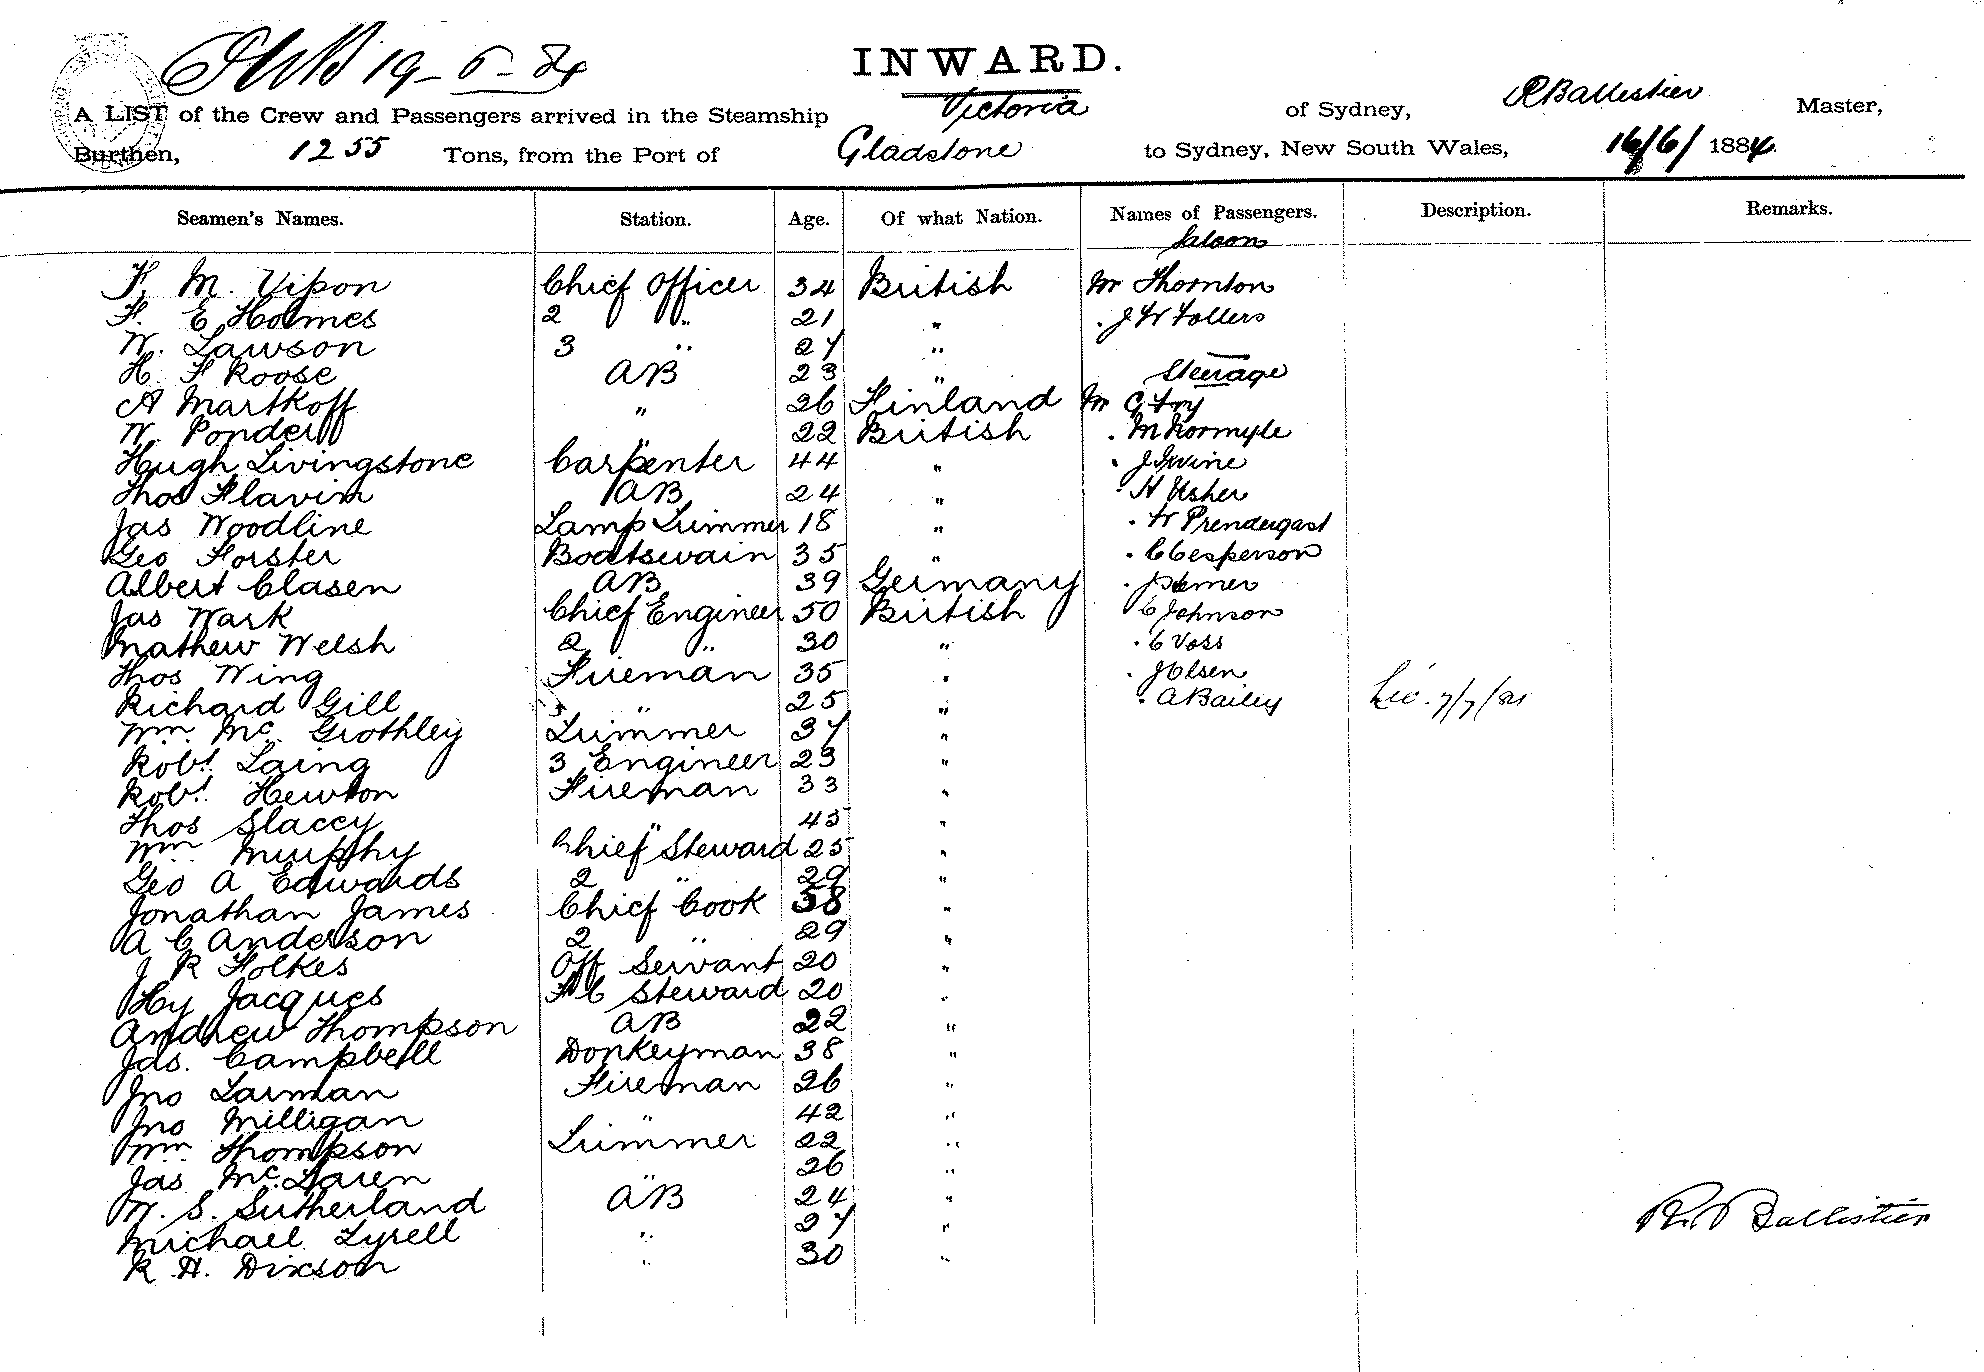 19-6-84
INWARD.
A LIST of the Crew and Passengers arrived in the Steamship Victoria of Sydney, R Ballistier Master,
Burthen, 1255 Tons, from the Port of Gladstone to Sydney, New South Wales, 16/6/ 1884
Seamen's Names. Station. Age. Of what Nation. Names of Passengers. Description. Remarks.
Saloon
F. M. Vipon Chief Officer 34 British Mr Thornton
F. E Holmes 2 " 21 " . J W Tollers
W. Lawson 3 " 27 "
H. F Roose AB 23 " Steerage
A Martkoff " 26 Finland Mr G Fry
W. Ponder " 22 British . M Kormyle
Hugh Livingstone Carpenter 44 " . J Irvine
Thos Flavin AB 24 " . H Usher
Jas Woodline Lamp Trimmer 18 " . W Prendergast
Geo Forster Boatswain 35 " . C Cesperson
Albert Clasen AB 39 Germany .
Jas Wark Chief Engineer 50 British C Johnson
Mathew Welsh 2 " 30 " . C Voss
Thos Wing Fireman 35 " . J Olsen
Richard Gill " 25 " . A Bailey
Wm. Mc Grothley Trimmer 37 "
Robt. Laing 3 Engineer 23 "
Robt. Hewton Fireman 33 "
Thos Slaccy " 45 "
Wm Murphy Chief Steward 25 "
Geo A Edwards 2 " 29 "
Jonathan James Chief Cook 58 "
A C Anderson 2 " 29 "
J R Folkes Off Servant 20 "
Hy Jacques F C Steward 20 "
Andrew Thompson AB 22 "
Jas. Campbell Donkeyman 38 "
Jno Larman Fireman 26 "
Jno Milligan " 42 "
Wm. Thompson Trimmer 22 "
Jas McLaren " 26 "
W. S. Sutherland AB 24 "
Michael Tyrell " 37 "
R. H. Dixson " 30 "
R. Ballistier